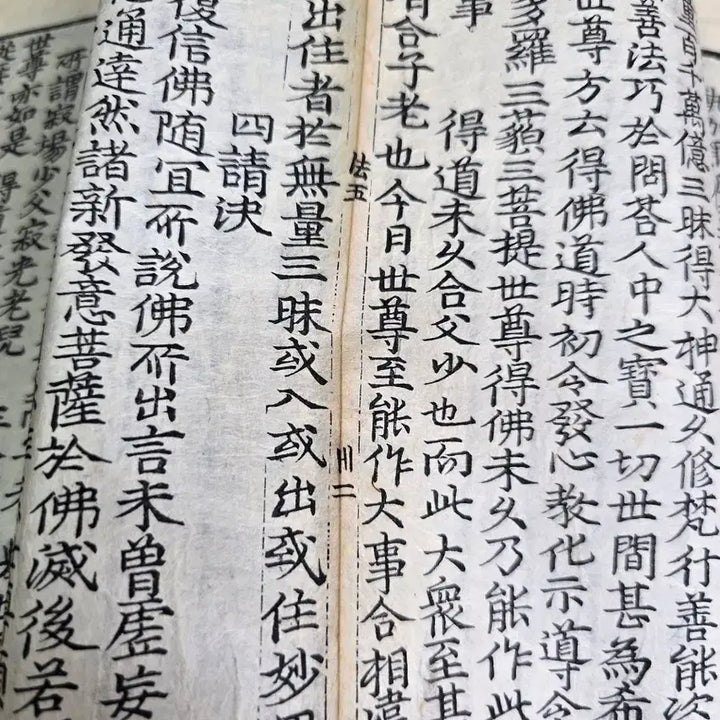 量百千萬億三昧得大神通久修梵行善能次
善法巧於問荅人中之寶一切世間甚為希
世尊方云得佛道時初令發心教化示導令
多羅三藐三菩提世尊得佛未久乃能作此
事 得道未久合父少也而此大衆至其
合子老也今日世尊至能作大事合相違
法五 卅二
出住者於無量三昧或入或出或住妙
四請決
復信佛随宜所說佛所出言未曾虛妄
通達然諸新發意菩薩於佛滅後若
所謂寂場少父寂光老兒
世尊亦如是 得